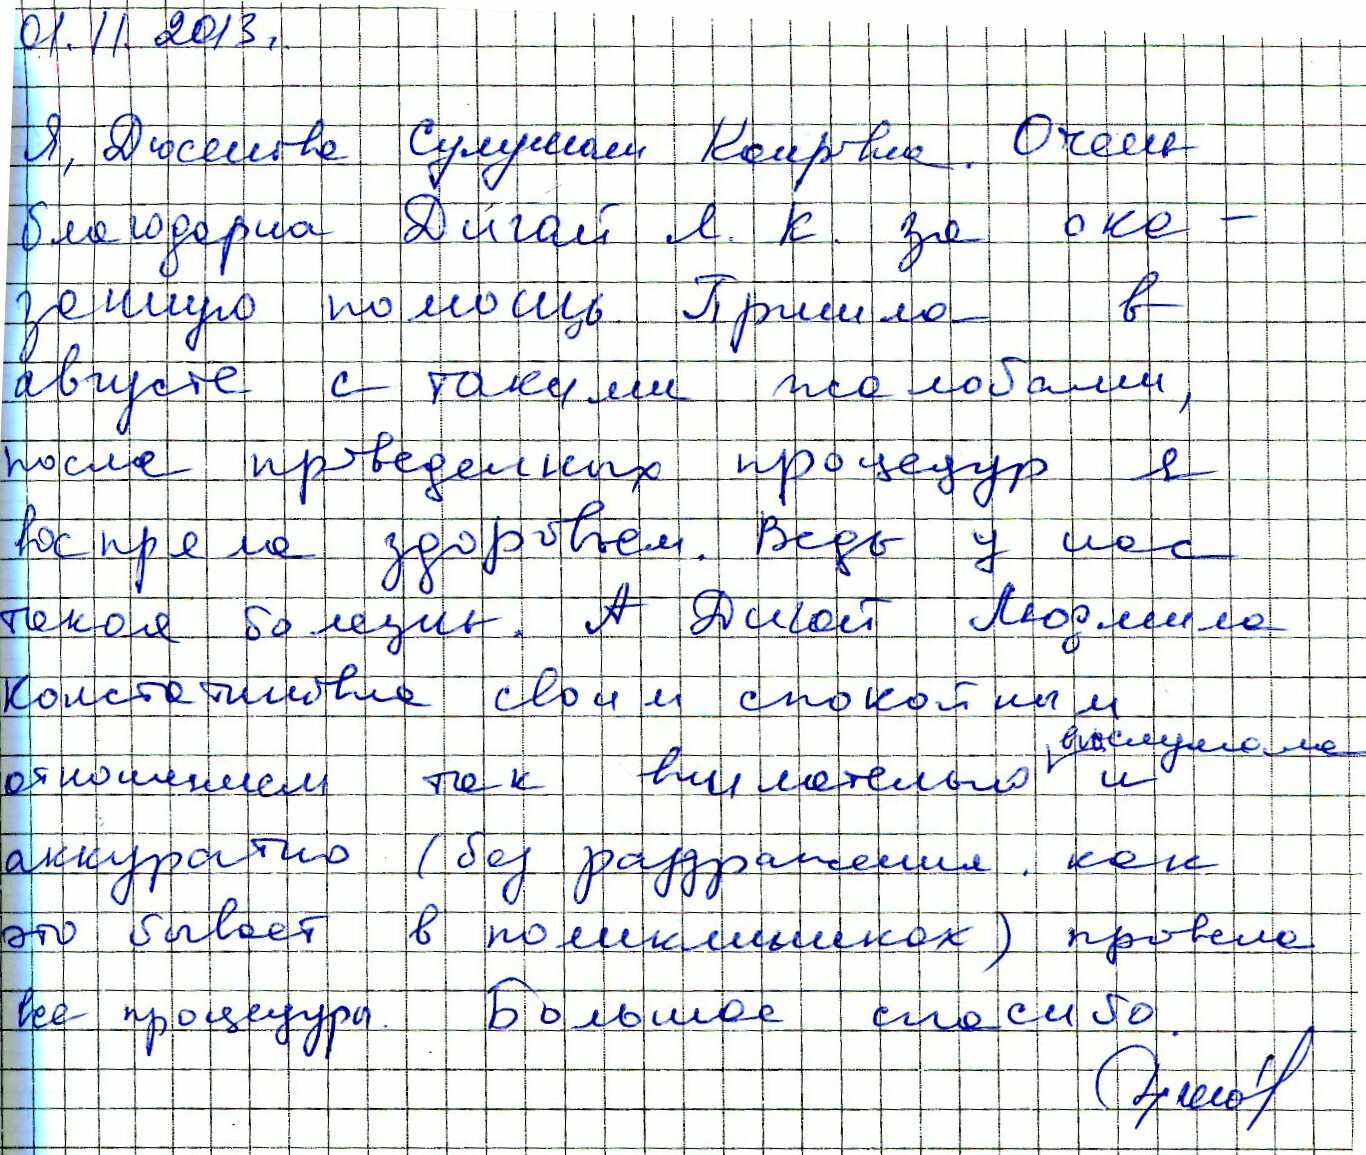 01.11.2013г.
Я, Дюсенова Сулушаш Каировна. Очень
благодарна Дигай Л. К. за ока-
занную помощь. Пришла в
августе с такими жалобами,
после проведенных процедур я
воспряла здоровьем. Ведь у нас
такая болезнь. А Дигай Людмила
Констатиновна своим спокойным
отношением так внимательно, выслушала и
аккуратно (без раздражения, как
это бывает в поликлиниках) провела
все процедуры. Большое спасибо.